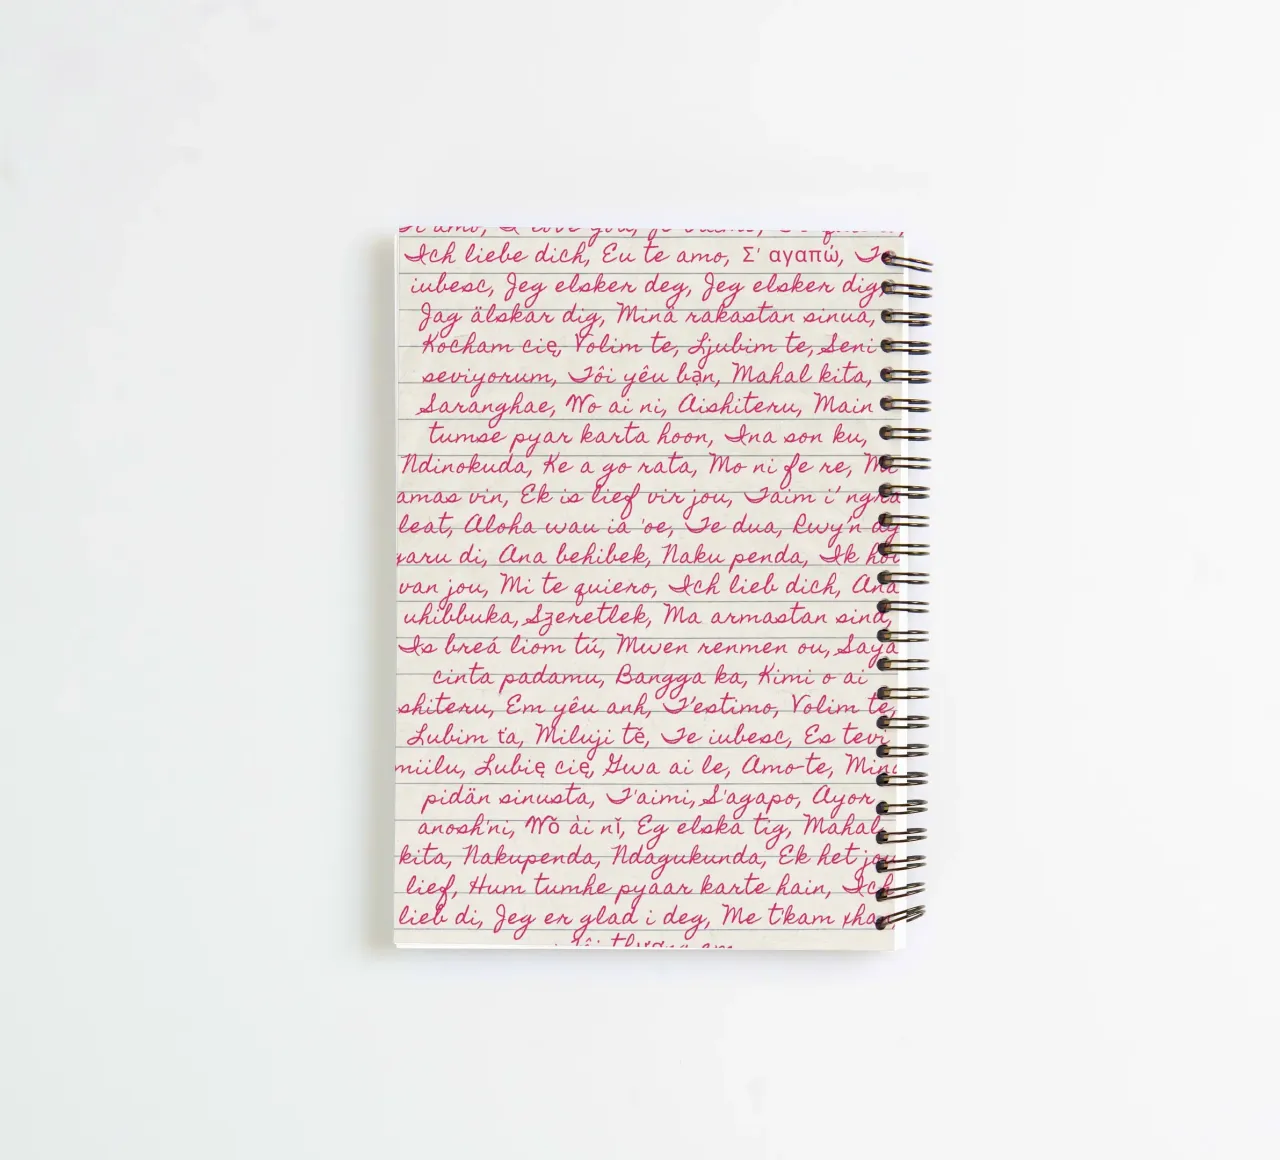 Ti amo, I love you, je t'aime,
Ich liebe dich, Eu te amo, Σ' αγαπώ, Te
iubesc, Jeg elsker deg, Jeg elsker dig,
Jag älskar dig, Mina rakastan sinua,
Kocham cię, Volim te, Ljubim te, Seni
seviyorum, Tôi yêu bạn, Mahal kita,
Saranghae, Wo ai ni, Aishiteru, Main
tumse pyar karta hoon, Ina son ku,
Ndinokuda, Ke a go rata, Mo ni fe re, Mi
amas vin, Ek is lief vir jou, Taim i' ngra
leat, Aloha wau ia 'oe, Te dua, Rwy'n dy
garu di, Ana behibek, Naku penda, Ik hou
van jou, Mi te quiero, Ich lieb dich, Ana
uhibbuka, Szeretlek, Ma armastan sind,
Is breá liom tú, Mwen renmen ou, Saya
cinta padamu, Bangga ka, Kimi o ai
shiteru, Em yêu anh, T'estimo, Volim te,
Lubim ťa, Miluji tě, Te iubesc, Es tevi
miilu, Lubię cię, Gwa ai le, Amo-te, Mina
pidän sinusta, T'aimi, S'agapo, Ayor
anosh'ni, Wǒ ài nǐ, Eg elska tig, Mahal
kita, Nakupenda, Ndagukunda, Ek het jou
lief, Hum tumhe pyaar karte hain, Ich
lieb di, Jeg er glad i deg, Me t'kam xhan,